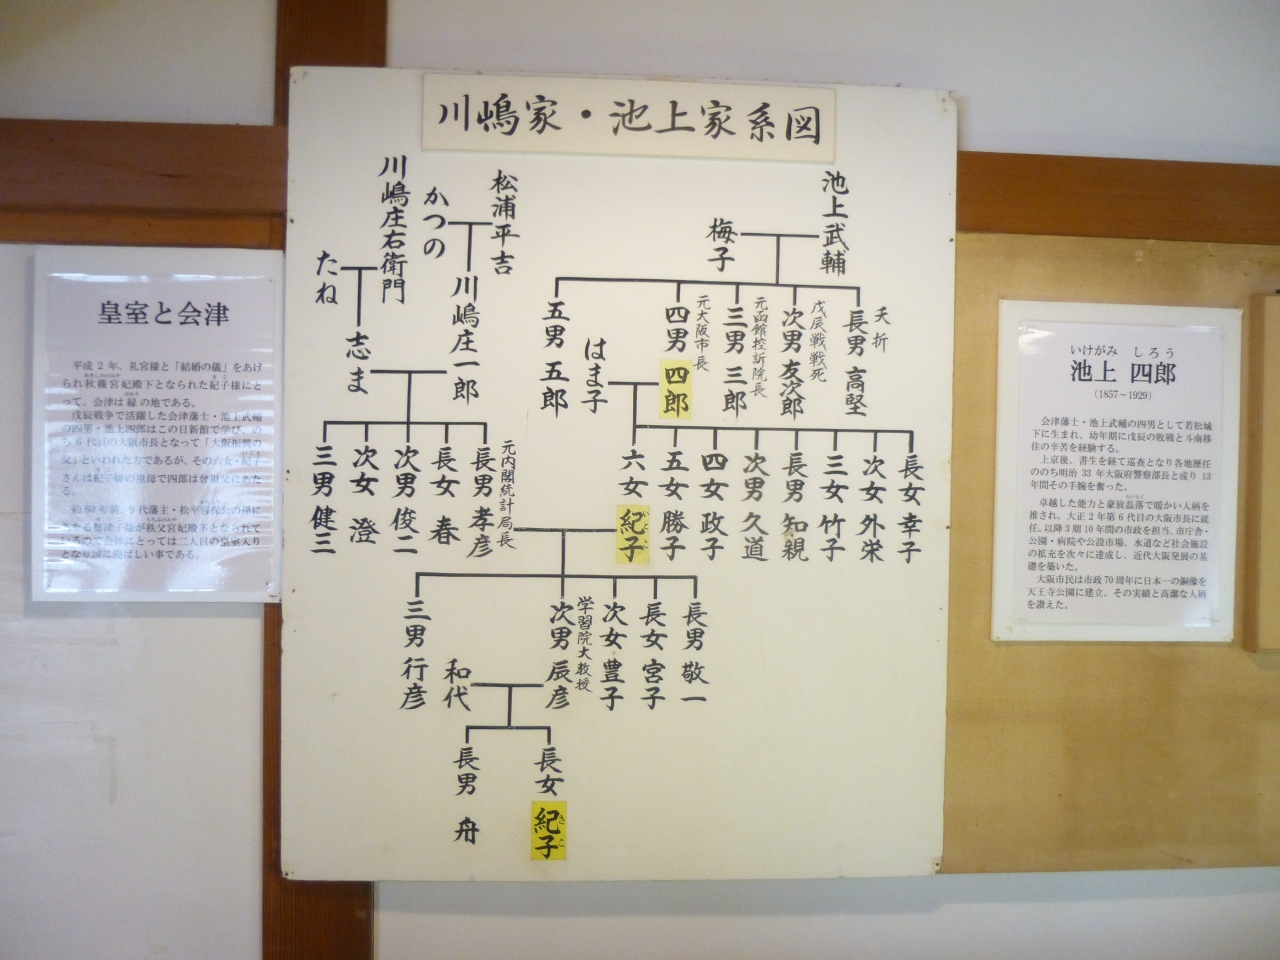 川嶋家・池上家系図
池上武輔
梅子
松浦平吉
かつの
川嶋庄右衛門
たね
川嶋庄一郎
志ま
夭折
長男 高堅
戊辰戦戦死
次男 友次郎
元函館控訴院長
三男 三郎
元大阪市長
四男 四郎
五男 五郎
はま子
長女 幸子
次女 外栄
三女 竹子
長男 知親
次男 久道
四女 政子
五女 勝子
六女 紀子
元内閣統計局長
長男 孝彦
長女 春
次男 俊二
次女 澄
三男 健三
長男 敬一
長女 宮子
次女 豊子
学習院大教授
次男 辰彦
三男 行彦
和代
長女 紀子
きこ
長男 舟
皇室と会津
平成2年、礼宮様と「結婚の儀」をあげ
られ秋篠宮妃殿下となられた紀子様にと
って、会津は縁の地である。
戊辰戦争で活躍した会津藩士・池上武輔
の四男・池上四郎はこの日新館で学び、の
ち6代目の大阪市長となって「大阪
父」といわれた方であるが、その六女・紀子
さんは紀子様の祖母で四郎は曾祖父にあた
る。
約60年前、9代藩主・松平容保公の孫に
あたる勢津子様が秩父宮妃殿下となられて
いるので会津にとっては二人目の皇室入り
となり誠に慶ばしい事である。
いけがみ しろう
池上 四郎
(1857～1929)
会津藩士・池上武輔の四男として若松城
下に生まれ、幼年期に戊辰の敗戦と斗南移
住の辛苦を経験する。
上京後、書生を経て巡査となり各地歴任
ののち明治33年大阪府警察部長と成り13
年間その手腕を奮った。
卓越した能力と豪放磊落で暖かい人柄を
推され、大正2年第6代目の大阪市長に就
任。以降3期10年間の市政を担当、市庁舎・
公園・病院や公設市場、水道など社会施設
の拡充を次々に達成し、近代大阪発展の基
礎を築いた。
大阪市民は市政70周年に日本一の銅像を
天王寺公園に建立、その実績と高潔な人柄
を讃えた。